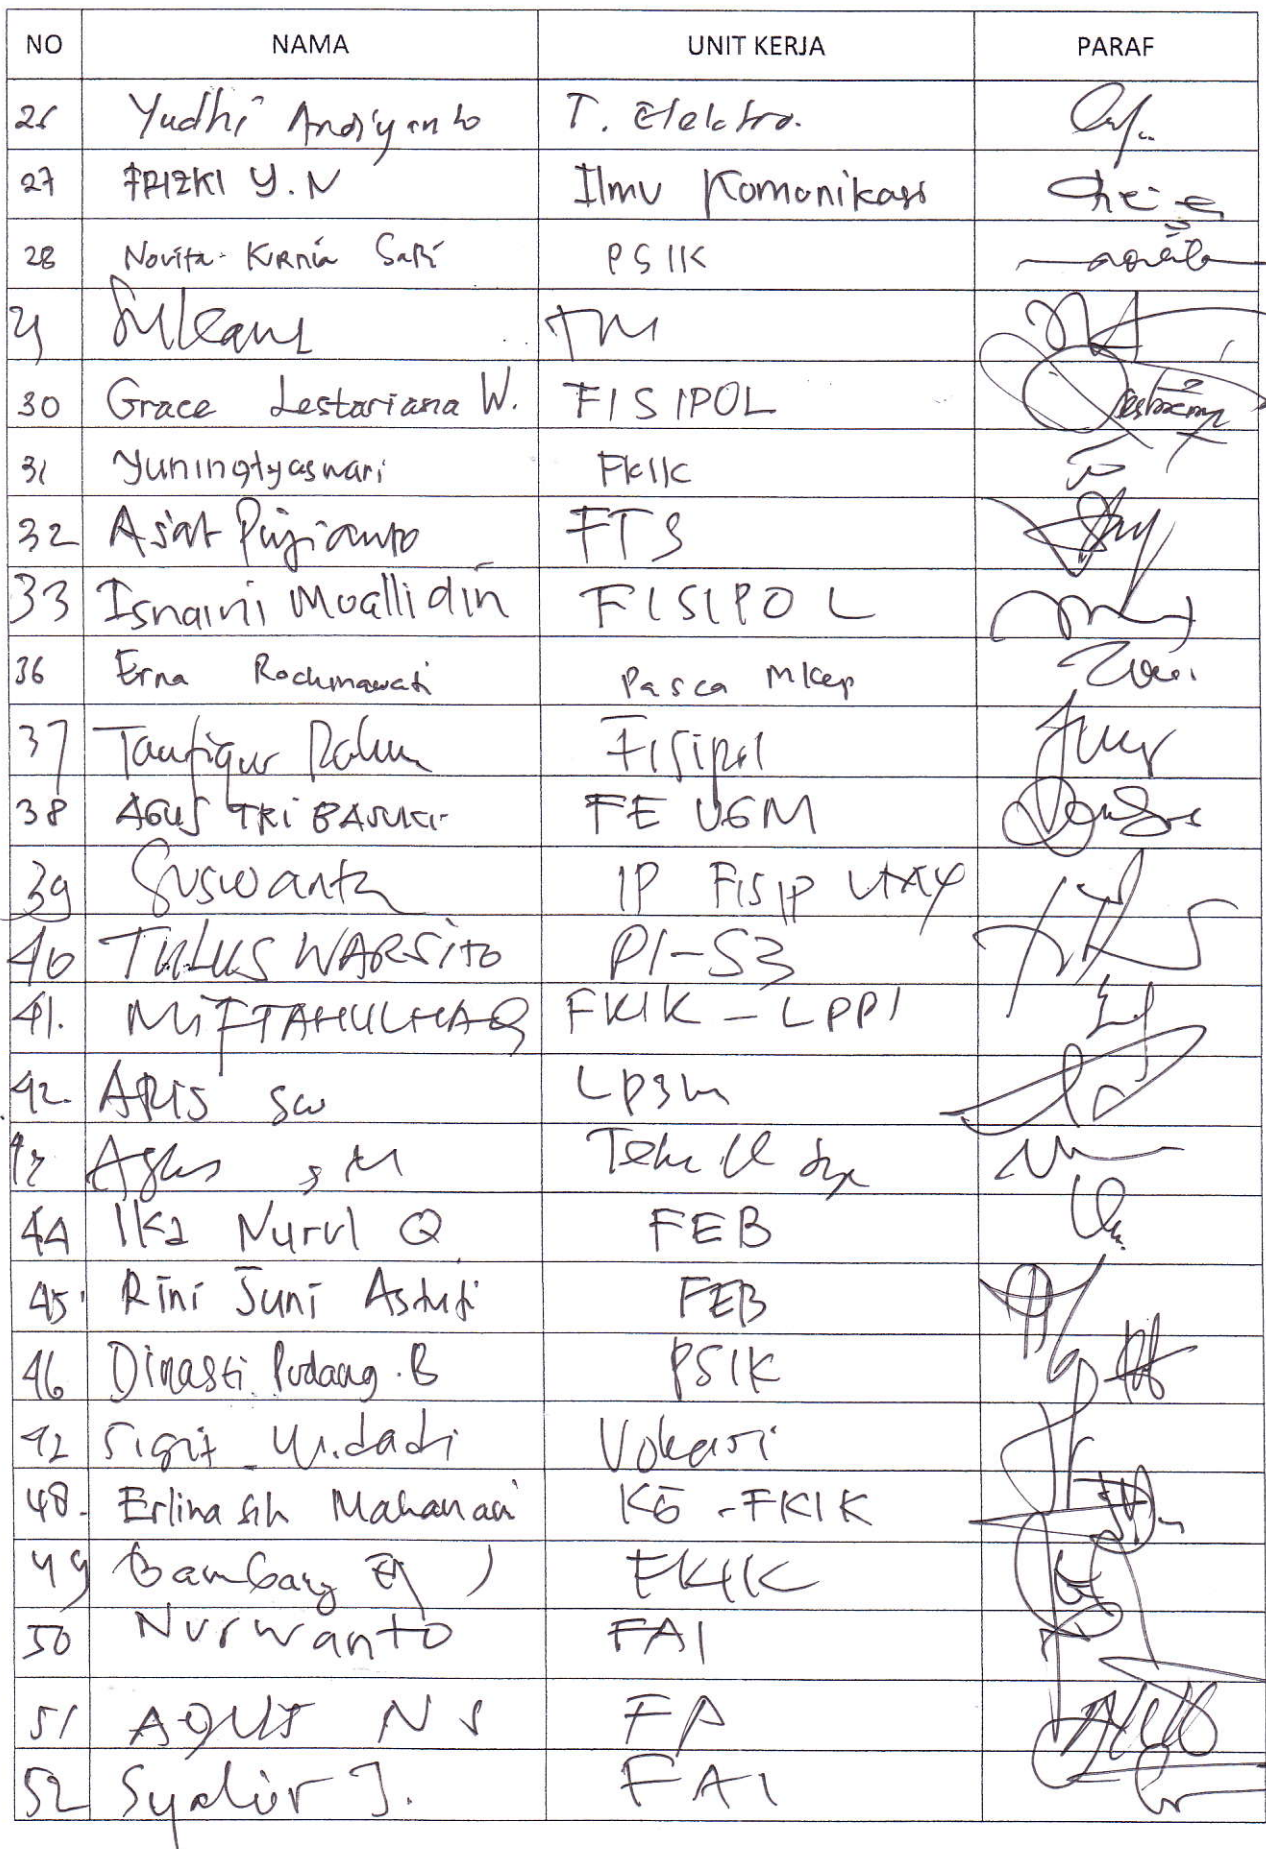 NO NAMA UNIT KERJA PARAF
26 Yudhi Ardiyanto T. Elektro.
27 FRIZKI Y.N Ilmu Komonikasi
28 Novita Kurnia Sari PSIK
29 TM
30 Grace Lestariana W. FISIPOL
31 Yuningtyaswari FKIK
32 As'at Pujianto FTS
33 Isnaini Muallidin FISIPOL
36 Erna Rochmawati Pasca MKep
37 Taufiqur Rahm Fisipol
38 AGUS TRI BASUKI FE UGM
39 Suswanta IP FISIP UMY
40 TULUS WARSITO PI-S3
41. MIFTAHULHAQ FKIK - LPPI
42. ARIS SW LP3M
43 Agus
44 Ika Nurul Q FEB
45 Rini Juni Astuti FEB
46 Dinasti Pudang. B PSIK
47 Sigit Widadi Vokasi
48. Erlina sih Mahanani KG - FKIK
49 Bambang FKIK
50 Nurwanto FAI
51 AGUS NS FP
52 FAI